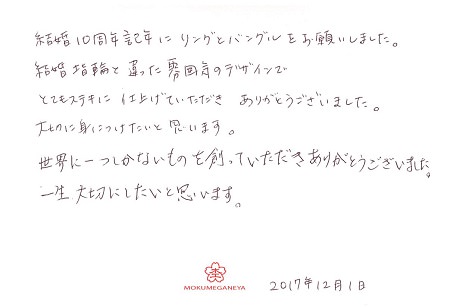 結婚10周年記年に リングとバングルをお願いしました。
結婚指輪と違った雰囲気のデザインで
とてもステキに仕上げていただき ありがとうございました。
大切に身につけたいと思います。
世界に一つしかないものを創っていただきありがとうございました。
一生大切にしたいと思います。
MOKUMEGANEYA
2017年12月1日